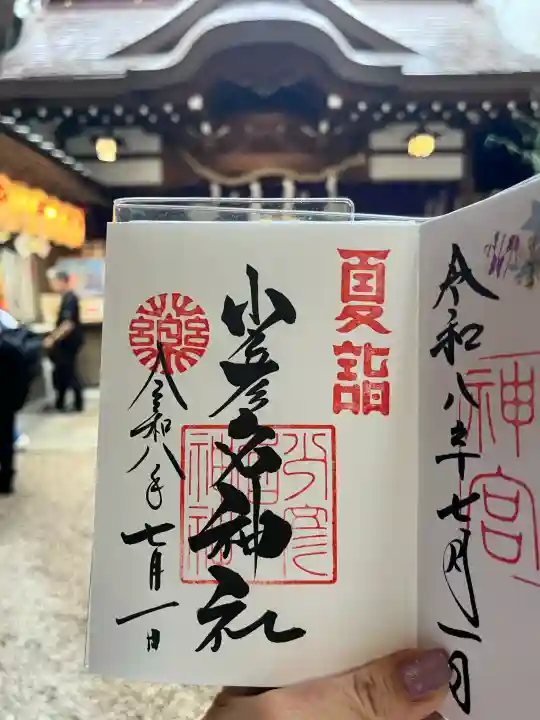 令和八年七月一日
神宮
夏詣
少彦名神社
藥
令和八年七月一日